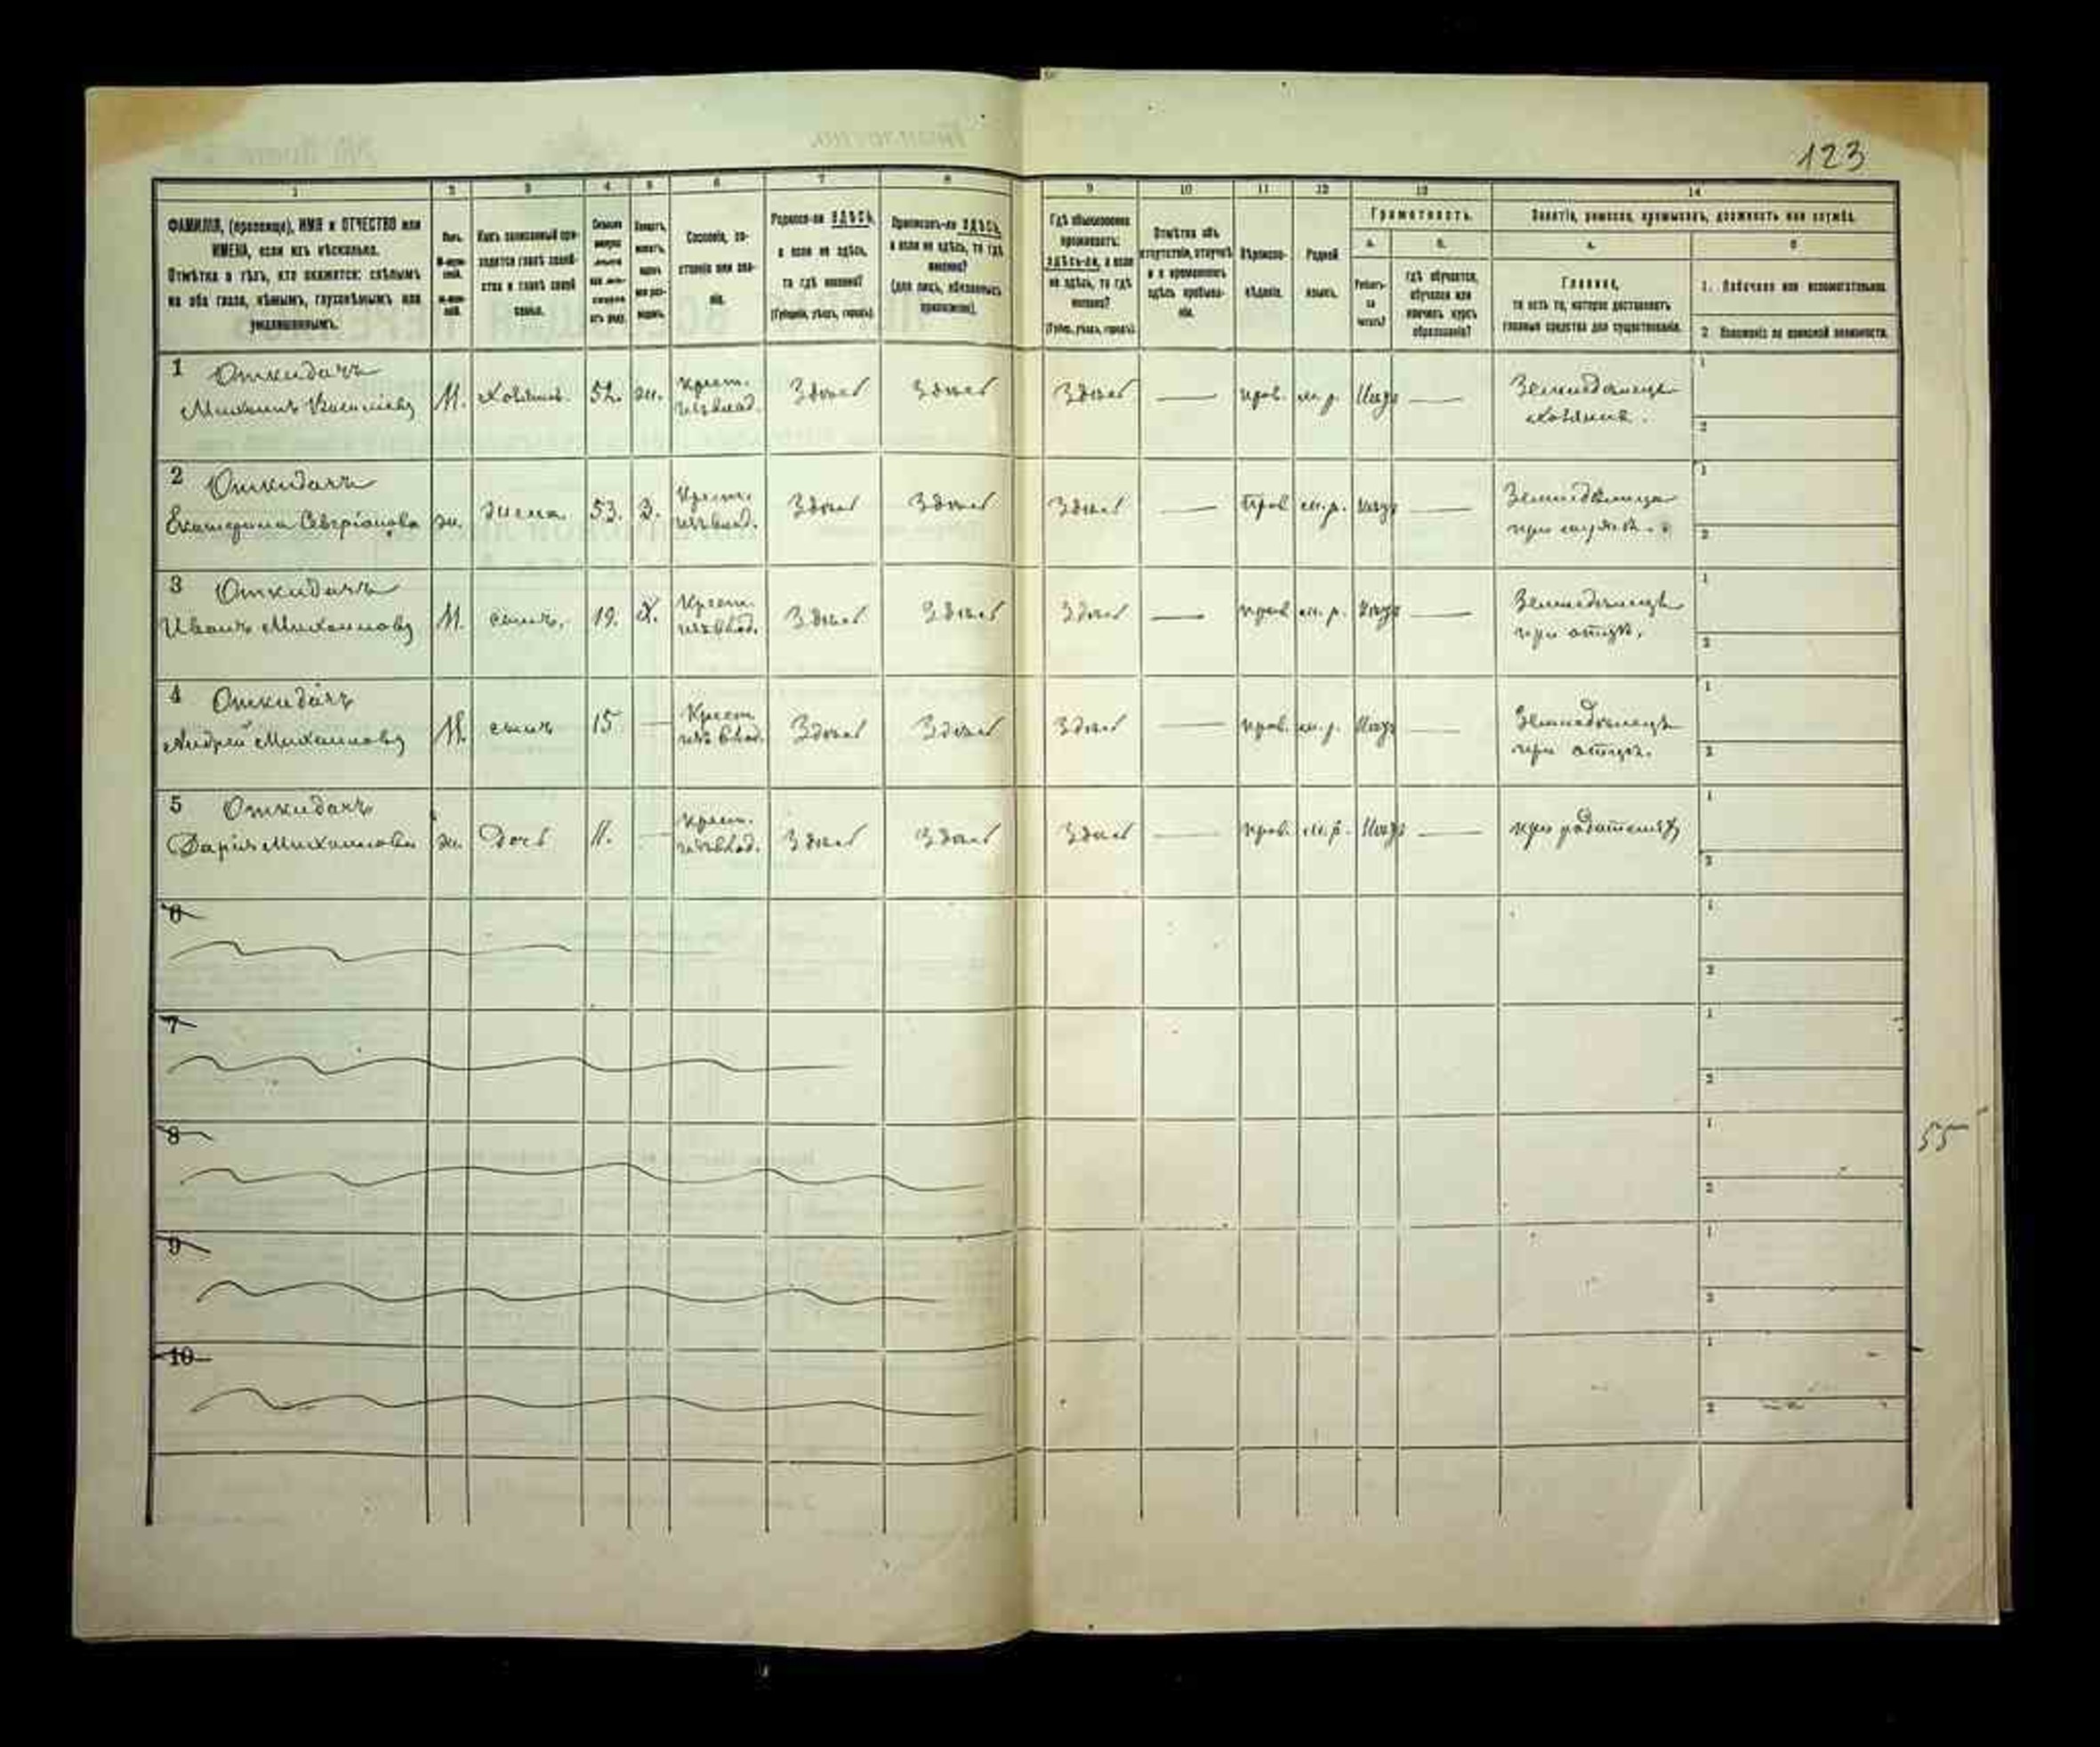 123
1 2 3 4 5 6 7 8 9 10 11 12 13 14
ФАМИЛІЯ, (прозвище), ИМЯ и ОТЧЕСТВО или
ИМЕНА, если ихъ нѣсколько.
Отмѣтка о тѣхъ, кто окажется: слѣпымъ
на оба глаза, нѣмымъ, глухонѣмымъ или
умалишеннымъ.
Полъ.
Какъ записанный при-
ходится главѣ хозяй-
ства и главѣ своей
семьи.
Сословіе, со-
стояніе или зва-
ніе.
Родился-ли ЗДѢСЬ,
а если не здѣсь,
то гдѣ именно?
(Губернія, уѣздъ, городъ).
Приписанъ-ли ЗДѢСЬ,
а если не здѣсь, то гдѣ
именно?
(для лицъ, обязанныхъ
припискою).
Гдѣ обыкновенно
проживаетъ:
здѣсь-ли, а если
не здѣсь, то гдѣ
именно?
(Губер., уѣздъ, городъ).
Отмѣтка объ
отсутствіи, отлучкѣ
и о временномъ
здѣсь пребыва-
ніи.
Вѣроиспо-
вѣданіе.
Родной
языкъ.
Грамотность.
а. б.
Умѣетъ-
ли
читать?
гдѣ обучается,
обучался или
кончилъ курсъ
образованія?
Занятіе, ремесло, промыселъ, должность или служба.
а. б
Главное,
то есть то, которое доставляетъ
главныя средства для существованія.
1. Побочное или вспомогательное.
2. Положеніе по воинской повинности.
1 Откидачъ
Михаилъ Васильевъ М. Хозяинъ. 52. ж. крест. изъ влад. Здѣсь Здѣсь Здѣсь — прав. м.р. — Земледѣлецъ хозяинъ. 1 2
2 Откидачъ
Екатерина ж. жена 53. З. Крест. изъ влад. Здѣсь Здѣсь Здѣсь — Прав м.р. — при мужѣ. 1 2
3 Откидачъ
Иванъ Михаиловъ М. сынъ. 19. Х. Крест. изъ влад. Здѣсь Здѣсь Здѣсь — прав м.р. — Земледѣлецъ при отцѣ. 1 2
4 Откидачъ
Андрей Михаиловъ М. сынъ 15 — Крест изъ влад. Здѣсь Здѣсь Здѣсь — прав. м.р. — Земледѣлецъ при отцѣ. 1 2
5 Откидачъ
Дарія Михаилова ж. Дочь 11. — крест. изъ влад. Здѣсь Здѣсь Здѣсь — прав. м.р. — при родителяхъ 1 2
6 1 2
7 1 2
8 1 2
55
9 1 2
10 1 2